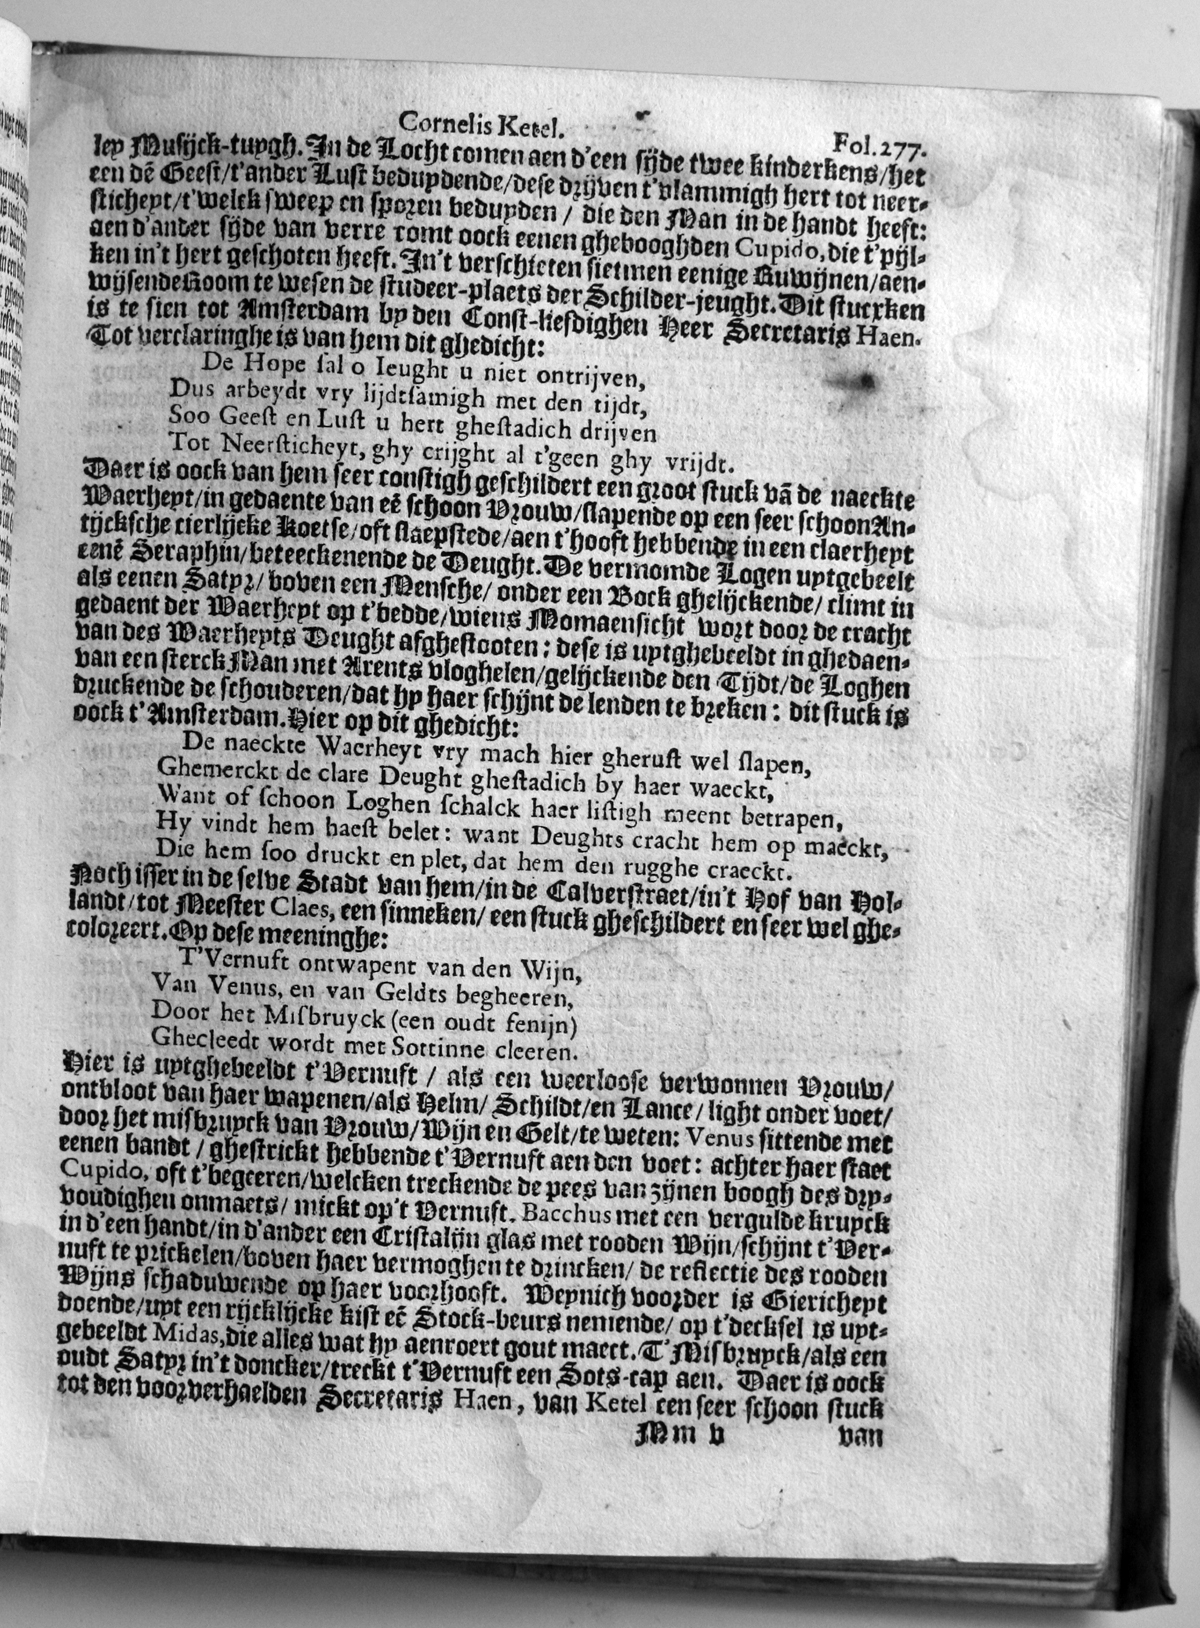 Cornelis Ketel.
Fol.277.
ley Musijck-tuygh. In de Locht comen aen d'een sijde twee kinderkens/het
een dē Geest/t'ander Lust beduydende/dese drijven t'vlammigh hert tot neer-
sticheyt/t'welck sweep en sporen beduyden / die den Man in de handt heeft:
aen d'ander sijde van verre comt oock eenen ghebooghden Cupido, die t'pijl-
ken in't hert geschoten heeft. In't verschieten sietmen eenige Ruwijnen/aen-
wijsende Room te wesen de studeer-plaets der Schilder-jeught. Dit stucxken
is te sien tot Amsterdam by den Const-liefdighen Heer Secretaris Haen.
Tot verclaringhe is van hem dit ghedicht:
De Hope ſal o Ieught u niet ontrijven,
Dus arbeydt vry lijdtſamigh met den tijdt,
Soo Geeſt en Luſt u hert gheſtadich drijven
Tot Neerſticheyt, ghy crijght al t'geen ghy vrijdt.
Daer is oock van hem seer constigh geschildert een groot stuck vā de naeckte
Waerheyt/in gedaente van eē schoon Vrouw/slapende op een seer schoon An-
tijcksche cierlijcke Koetse/oft slaepstede/aen t'hooft hebbende in een claerheyt
eenē Seraphin/beteeckenende de Deught. De vermomde Logen uytgebeelt
als eenen Satyr/boven een Mensche/ onder een Bock ghelijckende/ climt in
gedaent der Waerheyt op t'bedde/wiens Momaensicht wort door de cracht
van des Waerheyts Deught afghestooten: dese is uytghebeeldt in ghedaen-
van een sterck Man met Arents vloghelen/gelijckende den Tijdt/de Loghen
druckende de schouderen/dat hy haer schijnt de lenden te breken: dit stuck is
oock t'Amsterdam. Hier op dit ghedicht:
De naeckte Waerheyt vry mach hier gheruſt wel ſlapen,
Ghemerckt de clare Deught gheſtadich by haer waeckt,
Want of ſchoon Loghen ſchalck haer liſtigh meent betrapen,
Hy vindt hem haeſt belet: want Deughts cracht hem op maeckt,
Die hem ſoo druckt en plet, dat hem den rugghe craeckt.
Noch isser in de selve Stadt van hem/in de Calverstraet/in't Hof van Hol-
landt/tot Meester Claes, een sinneken/ een stuck gheschildert en seer wel ghe-
coloreert. Op dese meeninghe:
T'Vernuft ontwapent van den Wijn,
Van Venus, en van Geldts begheeren,
Door het Miſbruyck (een oudt fenijn)
Ghecleedt wordt met Sottinne cleeren.
Hier is uytghebeeldt t'Vernuft / als een weerloose verwonnen Vrouw/
ontbloot van haer wapenen/als Helm/ Schildt/en Lance/ light onder voet/
door het misbruyck van Vrouw/Wijn en Gelt/te weten: Venus sittende met
eenen bandt / ghestrickt hebbende t'Vernuft aen den voet: achter haer staet
Cupido, oft t'begeeren/welcken treckende de pees van zijnen boogh des dry-
voudighen onmaets/ mickt op't Vernuft. Bacchus met een vergulde kruyck
in d'een handt/in d'ander een Cristalijn glas met rooden Wijn/schijnt t'Ver-
nuft te prickelen/boven haer vermoghen te drincken/ de reflectie des rooden
Wijns schaduwende op haer voorhooft. Weynich voorder is Giericheyt
doende/uyt een rijcklijcke kist eē Stock-beurs nemende/ op t'decksel is uyt-
gebeeldt Midas, die alles wat hy aenroert gout maect. T'Misbruyck/als een
oudt Satyr in't doncker/treckt t'Vernuft een Sots-cap aen. Daer is oock
tot den voorverhaelden Secretaris Haen, van Ketel een seer schoon stuck
Mm v
van